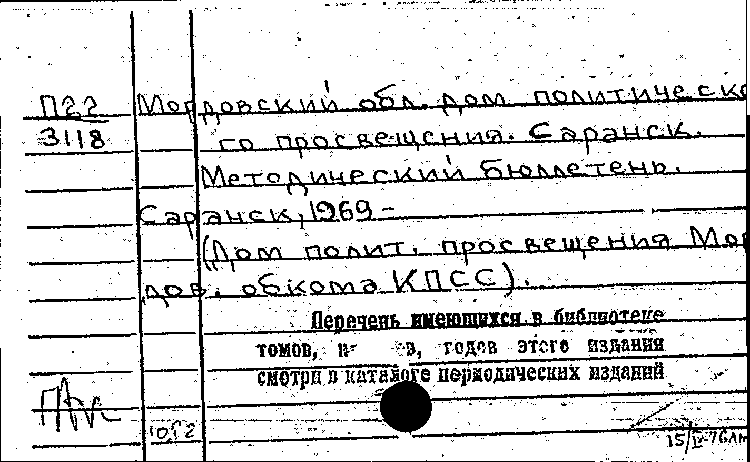 П22 Мордовский обл. дом политическо
3118 го просвещения. Саранск.
Методический бюллетень.
Саранск, 1969 –
(Дом полит. просвещения Мор
дов. обкома КПСС).
Перечень имеющихся в библиотеке
томов, годов этого издания
смотри в каталоге периодических изданий